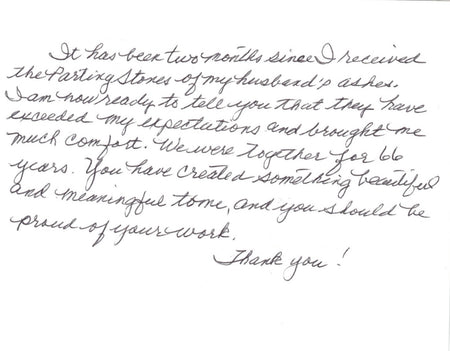 It has been two months since I received
the Parting Stones of my husband's ashes.
I am now ready to tell you that they have
exceeded my expectations and brought me
much comfort. We were together for 66
years. You have created something beautiful
and meaningful to me, and you should be
proud of your work.
Thank you!